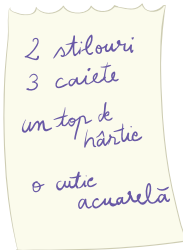 2 stilouri
3 caiete
un top de
hârtie
o cutie
acuarelă